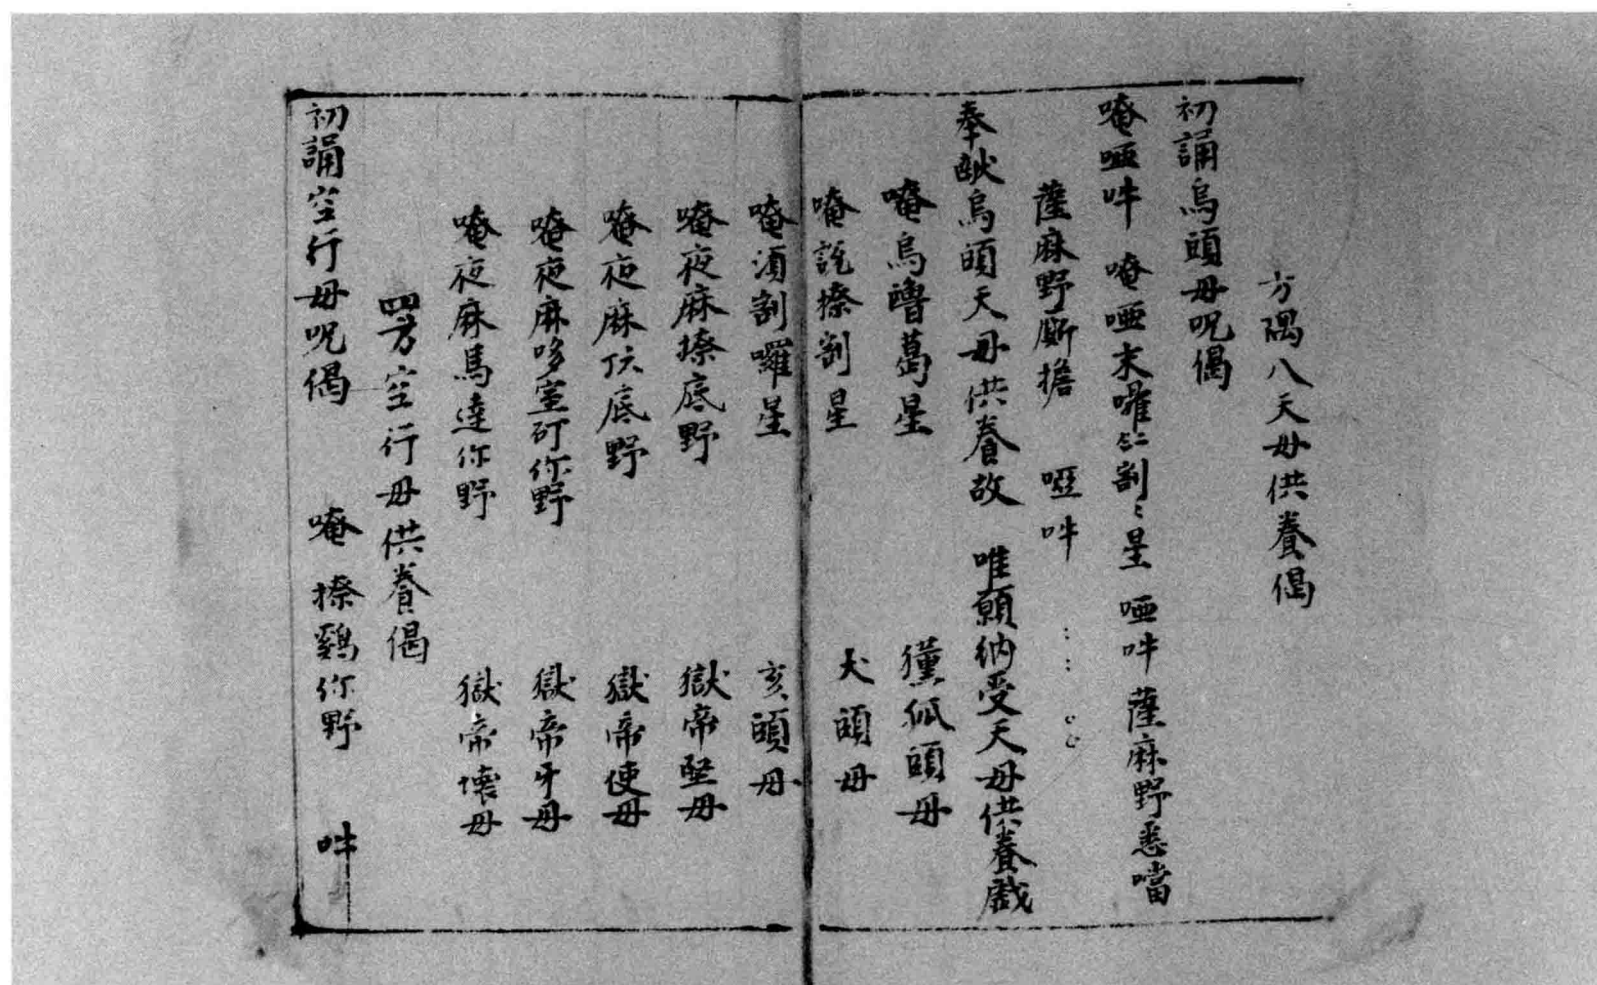 方隅八天母供養偈
初誦烏頭母呪偈
唵啞吽 唵啞末囉仁割〻星 啞吽薩麻野悉噹
薩麻野廝擔 啞吽
奉獻烏頭天母供養故 唯願納受天母供養戲
唵烏嚕葛星 獯狐頭母
唵説搽割星 犬頭母
唵須割囉星 亥頭母
唵夜麻搽底野 獄帝堅母
唵夜麻底野 獄帝使母
唵夜麻哆室矴你野 獄帝牙母
唵夜麻馬達你野 獄帝壞母
四方空行母供養偈
初誦空行母呪偈 唵搽鷄你野 吽